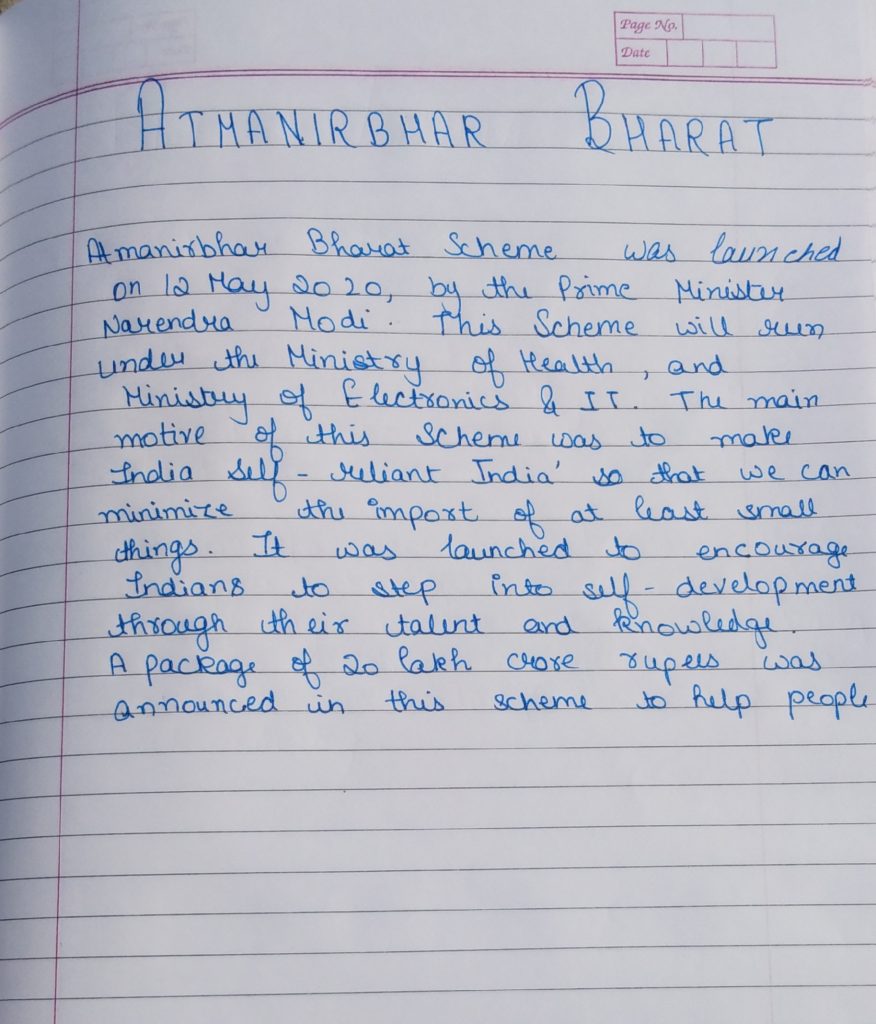 Page No.
Date
ATMANIRBHAR BHARAT
Atmanirbhar Bharat Scheme was launched
on 12 May 2020, by the Prime Minister
Narendra Modi. This Scheme will run
under the Ministry of Health, and
Ministry of Electronics & IT. The main
motive of this Scheme was to make
India self-reliant India' so that we can
minimize the import of at least small
things. It was launched to encourage
Indians to step into self-development
through their talent and knowledge.
A package of 20 lakh crore rupees was
announced in this scheme to help people